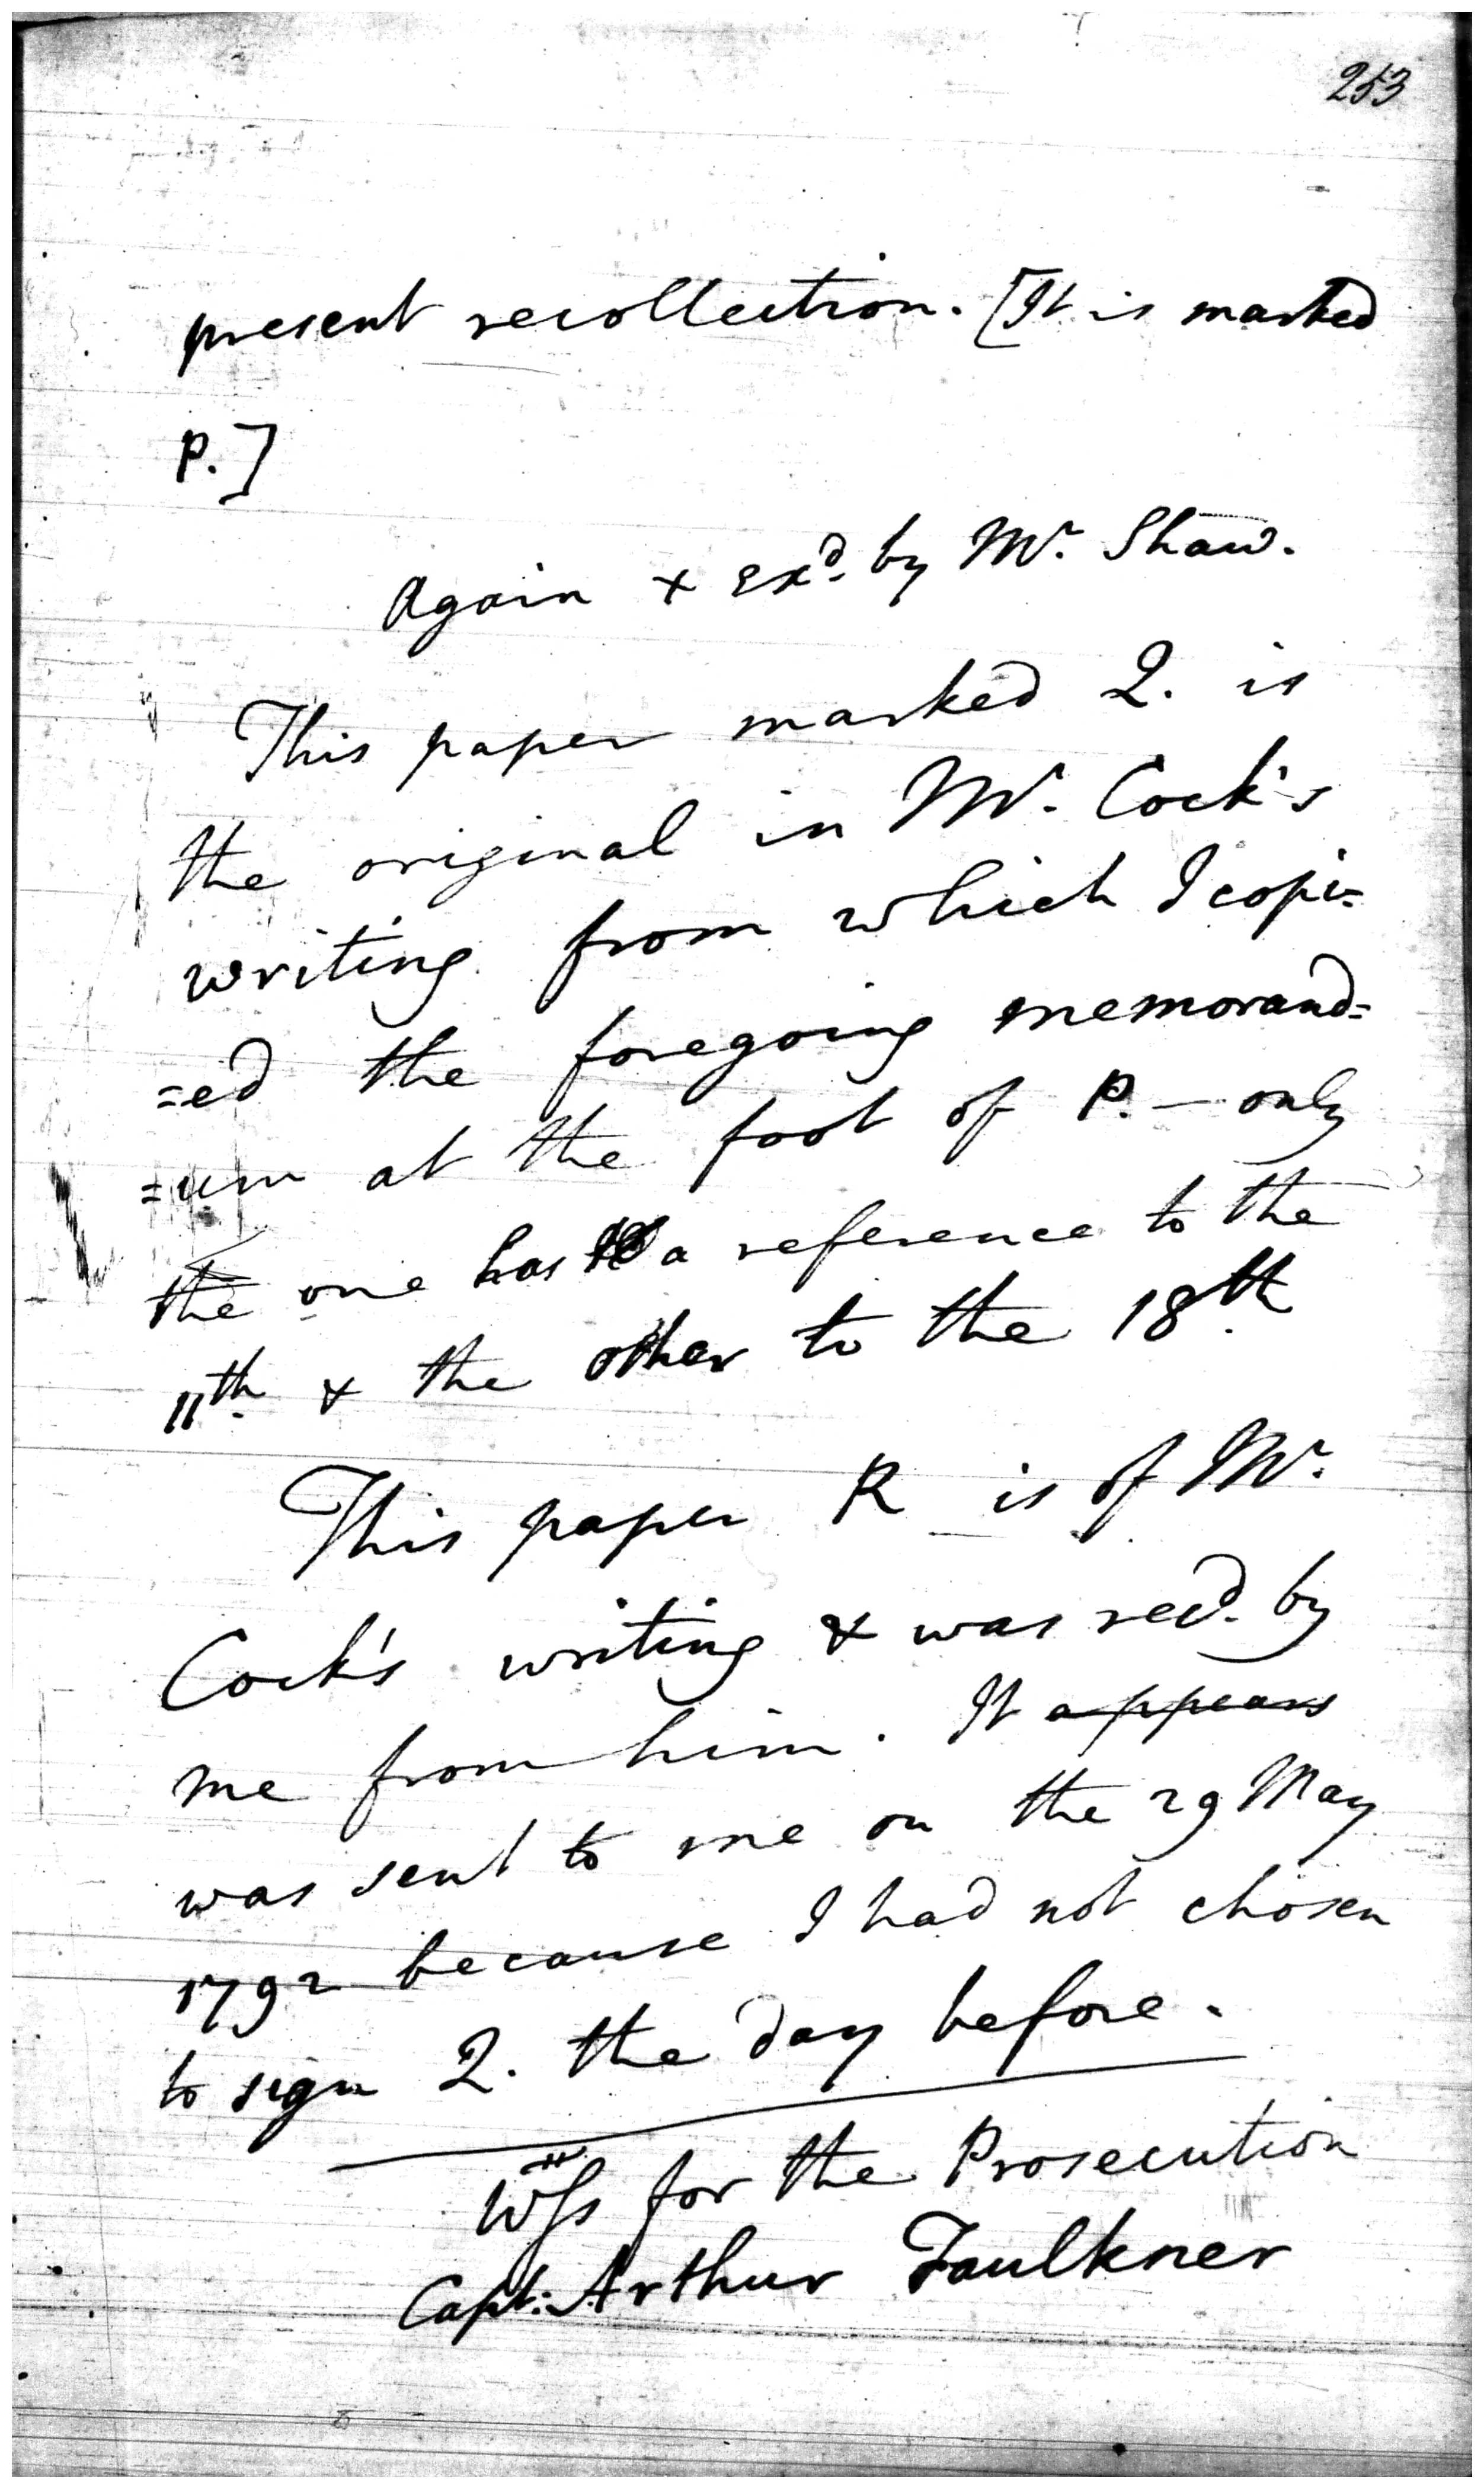 253
present recollection. [It is marked
P.]
Again x exd. by Mr. Shaw.
This paper marked Q. is
the original in Mr. Cock's
writing from which I copi=
=ed the foregoing memorand=
=um at the foot of P. — only
the one has a reference to the
11th. & the other to the 18th.
This paper R is of Mr.
Cock's writing & was recd. by
me from him. It appears
was sent to me on the 29 May
1792 because I had not chosen
to sign Q. the day before.
Wss for the Prosecution
Capt: Arthur Faulkner